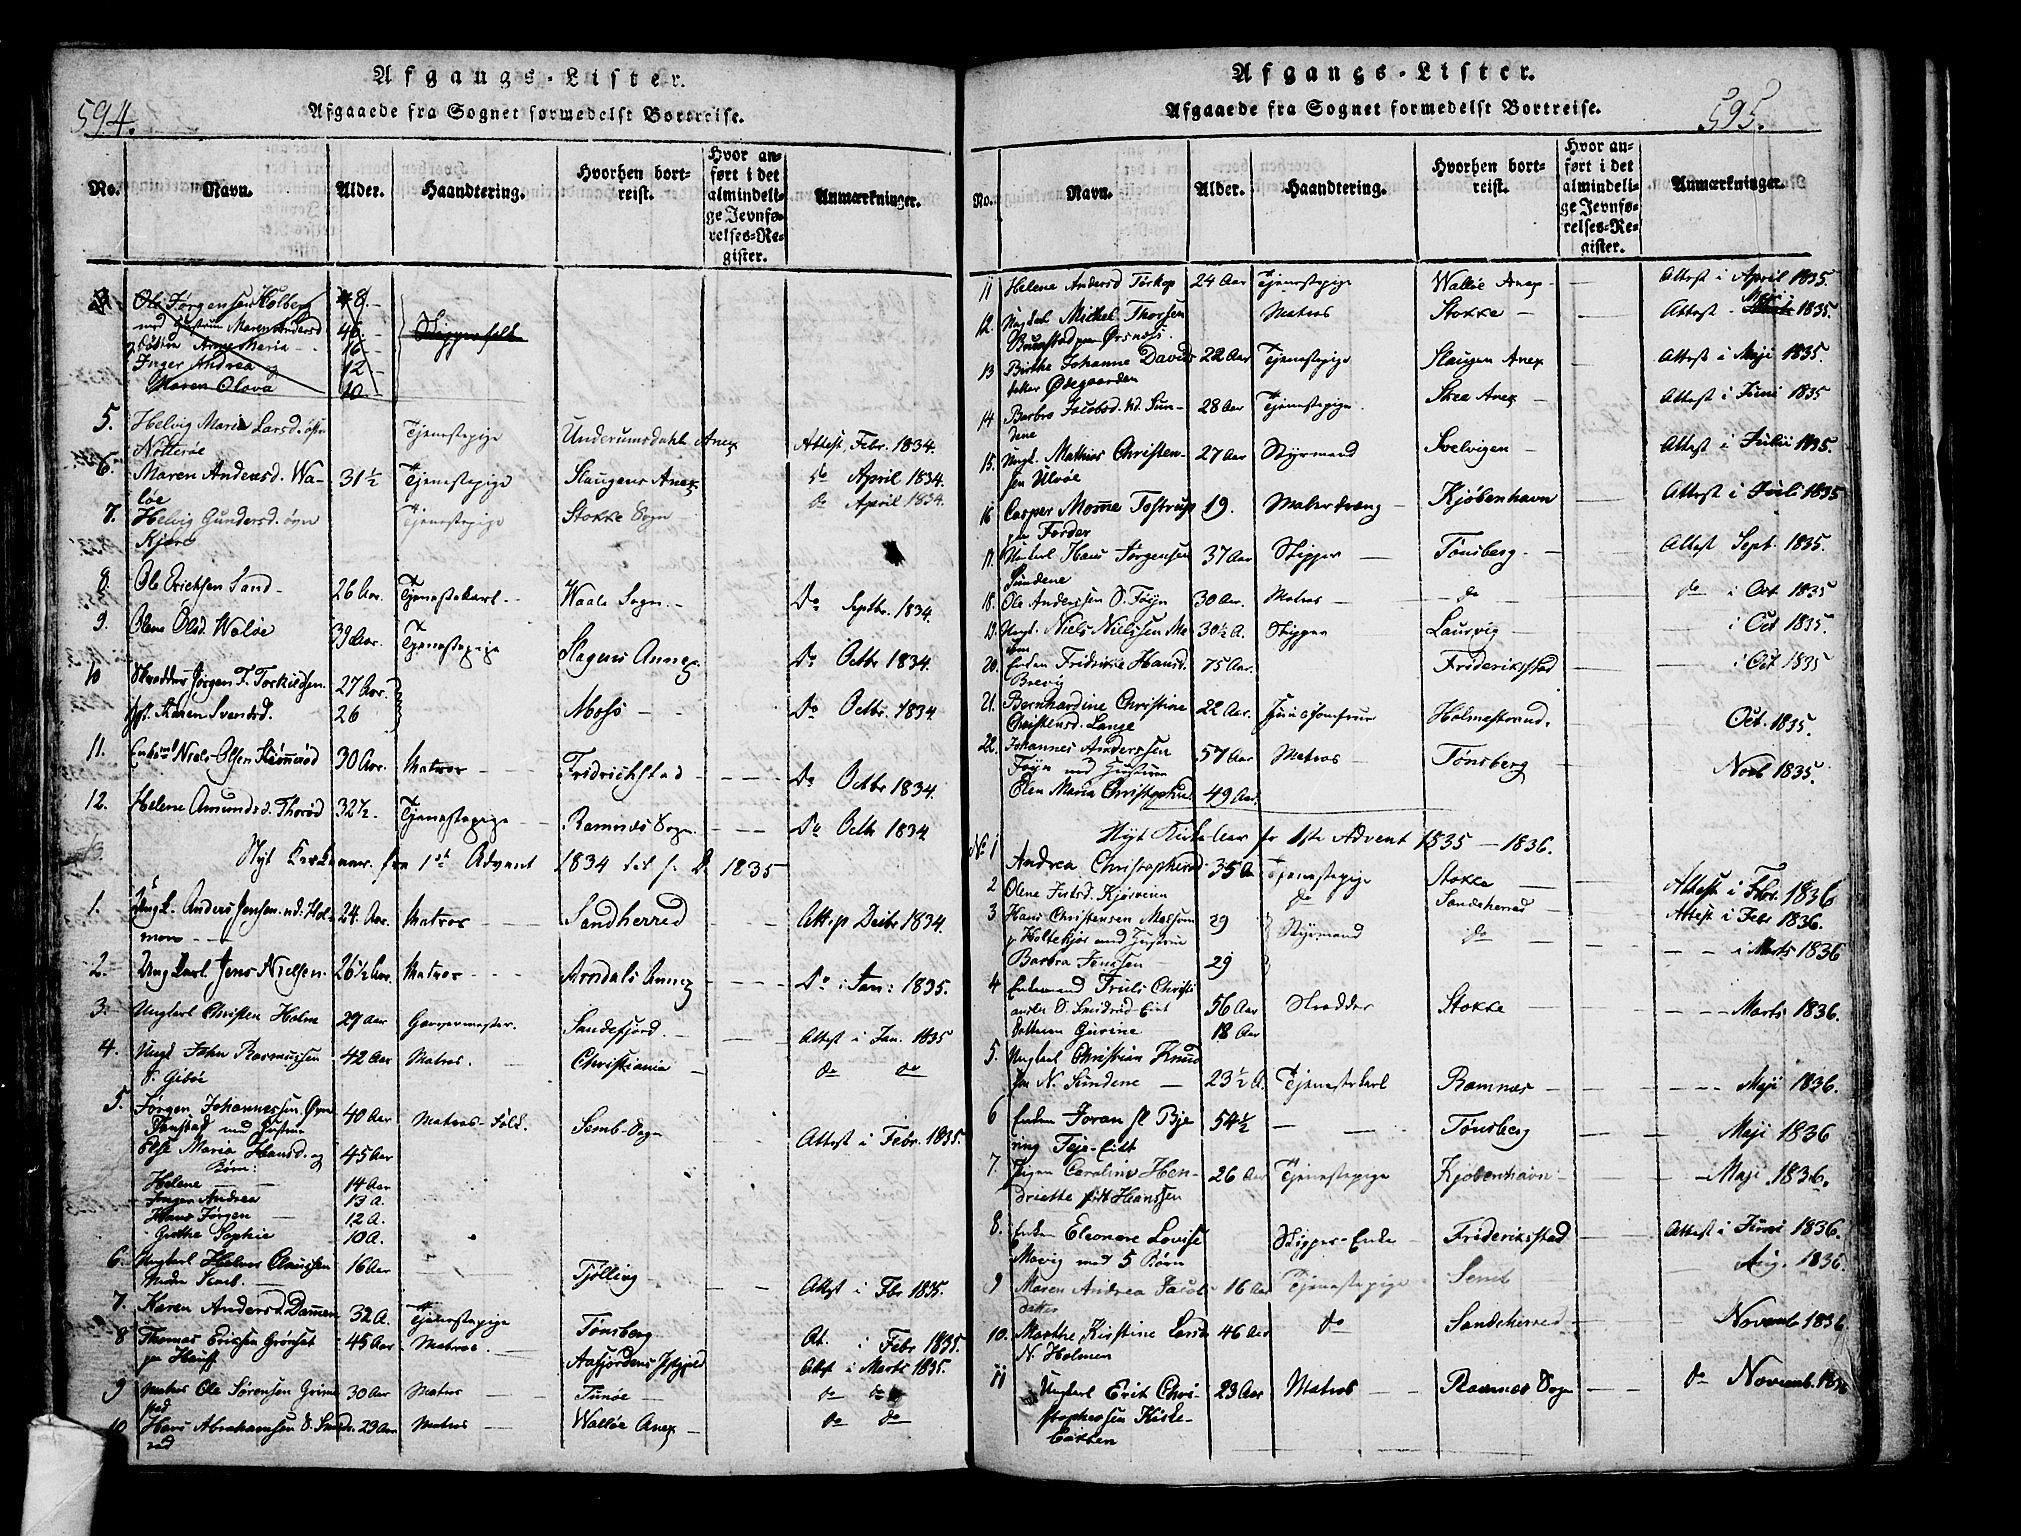 594.
Afgangs-Lister.
Afgaaede fra Sognet formedelst Bortreise.
No. Navn. Alder. Haandtering. Hvorhen bortreist. Hvor anført i det almindelige Jevnførelses-Register. Anmærkninger.
Ole Jørgensen Kolberg 48.
med Hustru Maren Andersd. 46. Skipperfolk
Anne Maria 16
Inger Andrea og 12
Maren Olava 10.
5. Helvig Maria Larsd. Tjenestepige Underumsdahls Anex Attest Febr. 1834.
Nøtterøe
6. Maren Andersd. Wa- 31½ Tjenestepige Slaugens Anex do April 1834.
løe
7. Helvig Gundersd. Tjenestepige Stokke Sogn do April 1834.
Kjære
8. Ole Erichsen Sand 26 Aar. Tjenestekarl Waale Sogn Do Septbr. 1834.
9. Olene Olsd. Waløe 39 Aar. Tjenestepige Slagens Annex. Do Octbr 1834.
10 Skrædder Jørgen F. Torkildsen 27 Aar.
Karen Svendsd. 26 Moss Do Octbr. 1834
11. Niels Olsen 30 Aar. Matros Fridrichstad Do Octbr 1834.
12. Helene Amundsd. Thorød 32½. Tjenestepige Ramnæs Sogn. Do Octbr 1834
Nyt Kirkeaar fra 1ste Advent 1834 til s. D. 1835
1. Ungk. Anders Jensen nd. Hol- 24. Aar. Matros Sandherred Att. Decbr 1834.
men
2. Ung Karl Jens Nielsen 26½ Aar. Matros Arndals Annex Do i Jan: 1835.
3. Ungkarl Christen Holm 29 Aar Garvermester. Sandefjord. Attest i Jan. 1835
4. Ungk. John Rasmussen 42 Aar Matros. Christiania do do
S. Gibøe
5. Jørgen Johannessen 40 Aar Matros-Folk. Semb-Sogn Attest i Febr. 1835.
med Hustru
Else Maria Hansd. og 45 Aar
Børn:
Helene 14 Aar
Inger Andrea 13 A.
Hans Jørgen 12 A.
Grethe Sophie 10 A.
6. Ungkarl Helmer Claussen 16 Aar Tjølling Attest i Fbr 1835.
7. Karen Andersd. Dammen 32 A. Tjenestepige Tønsberg At. i Febr 1835.
8 Thomas Ericksen 45 Aar Matros Aafjordens Attst i Marts 1835.
9 Matros Ole Sørensen Grim- 30 Aar Matros Tunøe do do
stad
10 Hans Abrahamsen S. Sm- 23 Aar Matros Walløe Anex do do
rød
595.
Afgangs-Lister.
Afgaaede fra Sognet formedelst Bortreise.
No. Navn. Alder. Haandtering. Hvorhen bortreist. Hvor anført i det almindelige Jevnførelses-Register. Anmærkninger.
11 Helene Andersd Torkop 24 Aar Tjenestepige Walløe Anex Attest i April 1835.
12. Michel Thorsen Matros Stokke Attest 1835.
Brunstad
13 Birthe Johanne Davids- 22 Aar Tjenestepige Slaugen Anex Attest i Maji 1835.
datter Ødegaarden
14 Barbro Jacobsd. Nd. Sun- 28 Aar Tjenestepige Skea Anex Attest i Juni 1835
dene
15. Ungk. Mathias Christen- 27 Aar Styrmand Svelvigen Attest i Julii 1835.
sen Ulvøe
16 Casper Momme Tostrup 19. Malerdreng Kjøbenhavn Attest i Juli 1835
paa Førder
17. Ungkarl Hans Jørgensen 37 Aar Skipper Tønsberg Attest Sept. 1835.
Sundene
18. Ole Anderssen S. Føyn 30 Aar. Matros do do i Oct 1835
19. Ungk. Niels Nielssen 30½ A. Skipper Laurvig i Oct 1835.
20. Enken Fridrikke Hansd. 75 Aar. Frideriksstad i Oct 1835
Brevig
21. Bernhardine Christine 22 Aar. Huusjomfrue Holmestrand. Oct. 1835.
Christensd. Lange
22. Johannes Anderssen 57 Aar Matros Tønsberg Novb 1835.
Føyn med Hustrue
Elen Maria Christophersd. 49 Aar.
Nyt Kirke Aar fr 1ste Advent 1835 - 1836.
No 1 Andrea Christophersd 35 A Tjenestepige Stokke Attest i Fbr. 1836
2 Olene Kjørveien do Sandeherred Attest i Febr 1836.
3 Hans Christensen 29 Styrmand do i Marts 1836
Holtekjær med Hustrue
Barbra Jenssen 29
4 Enkemand Truls Christi- 56 Aar Skrædder Stokke Marts 1836.
ansen Ø. Smidsrød
Datteren Gurine 18 Aar
5. Ungkarl Christian Knud-
sen N. Sundene 23½ A. Tjenestekarl Ramnæs Maji 1836.
6 Enken Joran Bje 54½ Tønsberg Maji 1836
ring Teje-Eidt
7. Pigen Caroline Hen- 26 Aar Tjenestepige Kjøbenhavn i Maji 1836.
driette Hanssen
8. Enken Eleonore Lovise Skipper-Enke Frideriksstad Attest i Juni 1836.
med 5 Børn
9 Maren Andrea Jacobs- 16 Aar Tjenestepige Semb Aug. 1836.
datter
10. Marthe Kirstine Larsd 46 Aar do Sandeherred Novemb 1836
N. Holmen
11 Ungkarl Erik Chri- 23 Aar Matros Ramnæs Sogn do Novemb. 1836
stophersen Kirke-
Eikken